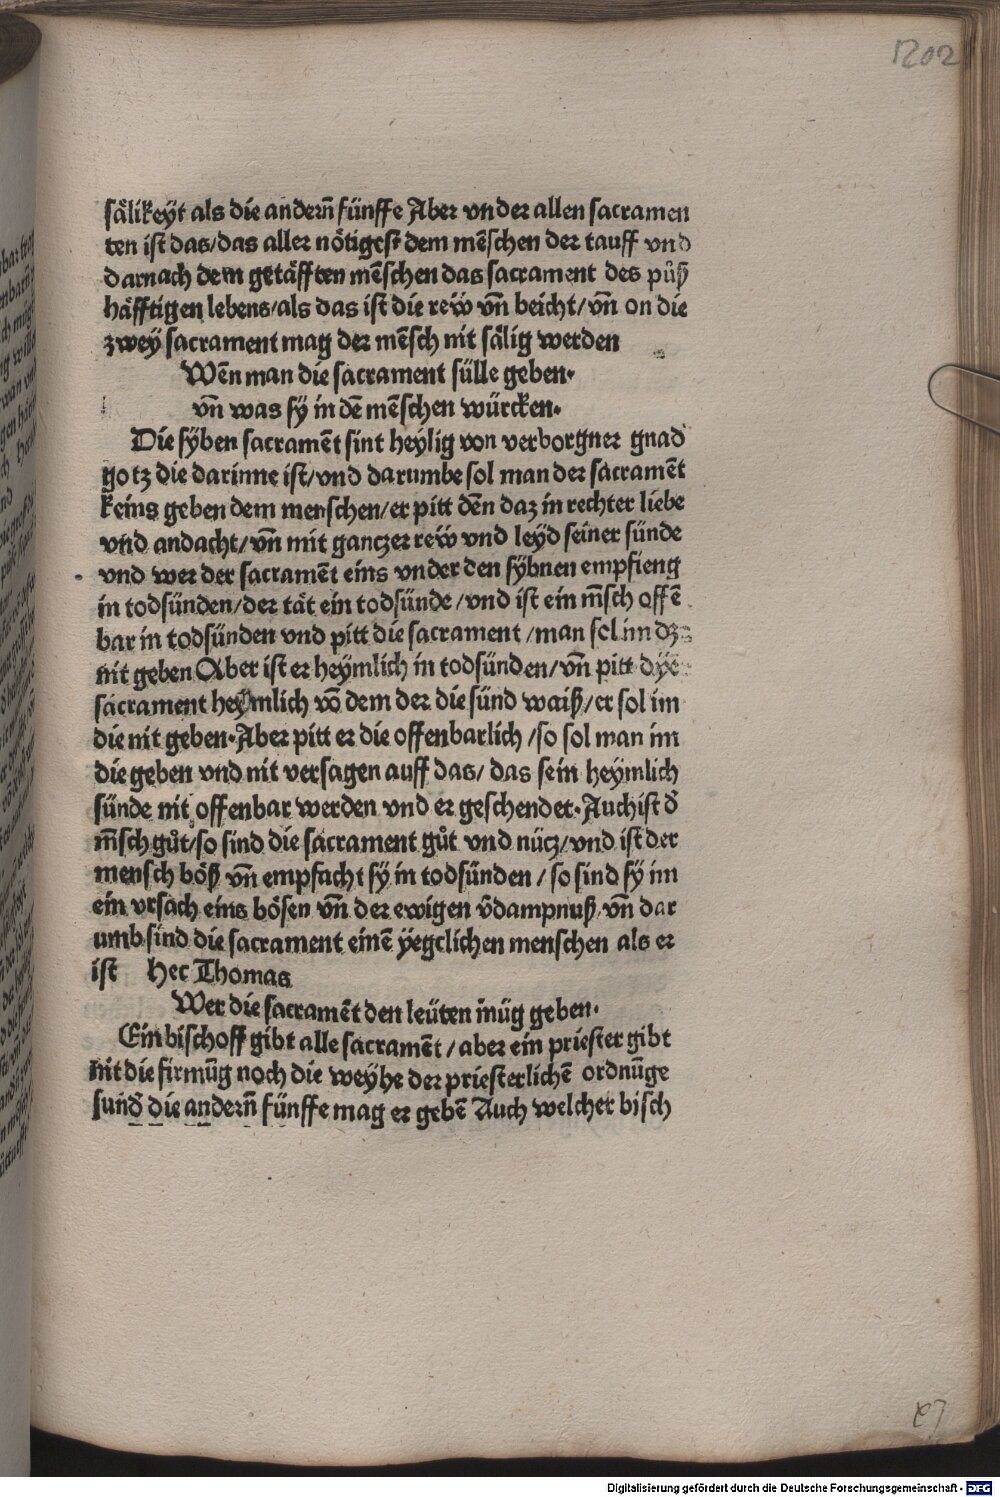 1202
sälikeÿt als die andern̄ fünffe Aber vnder allen sacramen
ten ist das/das aller nötigest dem mēschen der tauff vnd
darnach dem getäfften mēschen das sacrament des půß
häfftigen lebens/als das ist die reẅ vn̄ beicht/vn̄ on die
zweÿ sacrament mag der mēsch nit sälig werden
Wēn man die sacrament sülle geben.
vn̄ was sÿ in dē mēschen würcken.
Die sÿben sacramēt sint heÿlig von verborgner gnad
gotz die darinne ist/vnd darumbe sol man der sacramēt
keins geben dem menschen/er pitt dēn daz in rechter liebe
vnd andacht/vn̄ mit ganczer reẅ vnd leÿd seiner sünde
vnd wer der sacramēt eins vnder den sÿbnen empfieng
in todsünden/der tät ein todsünde/vnd ist ein m̄sch offē
bar in todsünden vnd pitt die sacrament/man sol im dz
nit geben Aber ist er heÿmlich in todsünden/vn̄ pitt dÿe
sacrament heÿmlich vō dem der die sünd waiß/er sol im
die nit geben.Aber pitt er die offenbarlich/so sol man im
die geben vnd nit versagen auff das/das sein heÿmlich
sünde nit offenbar werden vnd er geschendet.Auch ist d̄
m̄sch gůt/so sind die sacrament gůt vnd nücz/vnd ist der
mensch böß vn̄ empfacht sÿ in todsünden/so sind sÿ im
ein vrsach eins bösen vn̄ der ewigen v̄dampnuß/vn̄ dar
umb sind die sacrament einē ÿegclichen menschen als er
ist hec Thomas
Wer die sacramēt den leüten müg geben.
Ein bischoff gibt alle sacramēt/aber ein priester gibt
nit die firmūg noch die weÿhe der priesterlichē ordnūge
sund̄ die andern̄ fünffe mag er gebē Auch welcher bisch
Digitalisierung gefördert durch die Deutsche Forschungsgemeinschaft - DFG